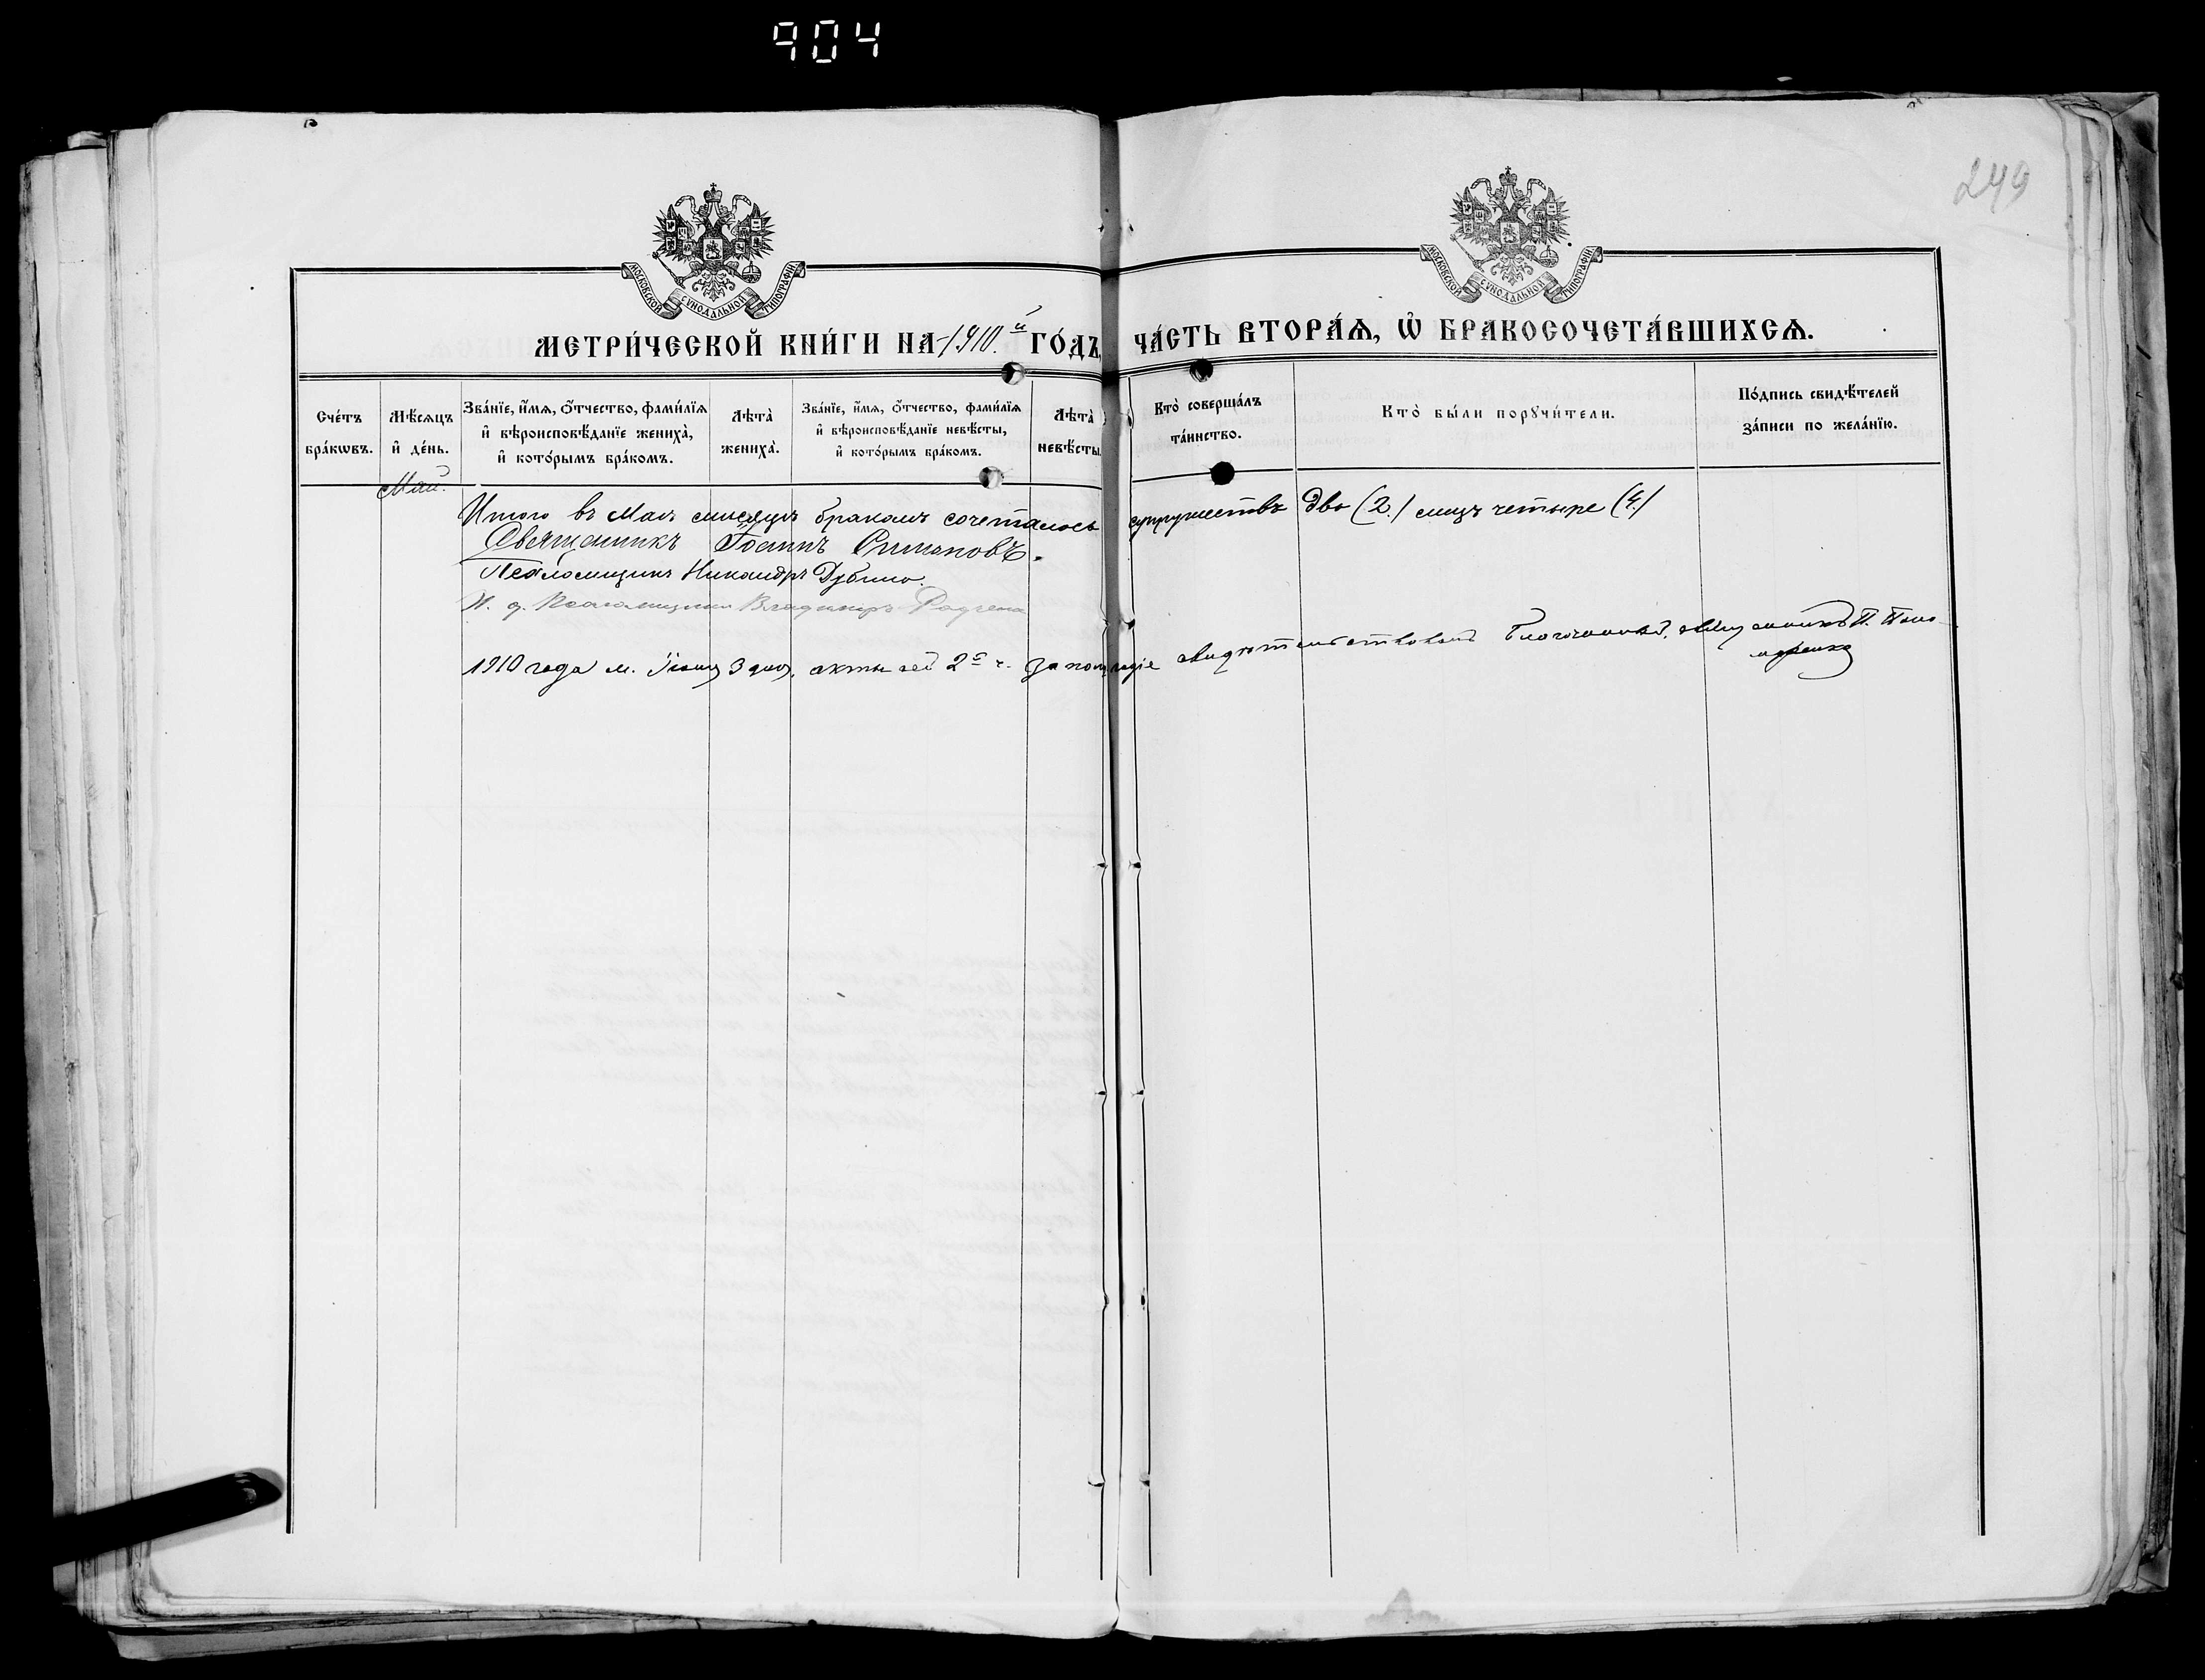 904
249
МОСКОВСКОЙ СѴНОДАЛЬНОЙ ТИПОГРАФІИ
МОСКОВСКОЙ СѴНОДАЛЬНОЙ ТИПОГРАФІИ
МЕТРИ́ЧЕСКОЙ КНИ́ГИ НА 1910.й ГО́ДЪ, ЧА́СТЬ ВТОРА́Ѧ, Ѽ БРАКОСОЧЕТА́ВШИХСѦ.
Сче́тъ
бра́кѡвъ.
Мѣ́сѧцъ
и҆ де́нь.
Зва́нїе, и҆́мѧ, ѻ҆́тчество, фами́лїѧ
и҆ вѣроисповѣ́данїе жениха̀,
и҆ кото́рымъ бра́комъ.
Лѣта̀
жениха̀.
Зва́нїе, и҆́мѧ, ѻ҆́тчество, фами́лїѧ
и҆ вѣроисповѣ́данїе невѣ́сты,
и҆ кото́рымъ бра́комъ.
Лѣта̀
невѣ́сты.
Кто̀ соверша́лъ
та́инство.
Кто̀ бы́ли порꙋчи́тели.
По́дпись свидѣ́телей
за́писи по жела́нїю.
Май.
Итого въ Маѣ мѣсяцѣ бракомъ сочеталось супружествъ два (2.) лицъ четыре (4.)
Священникъ Іоаннъ
Псаломщикъ Никандръ Дубина.
И. д. Псаломщика Владимиръ
1910 года м. Іюня 3 дня. акты сей 2й ч. за полугодіе свидѣтельствовалъ Благочинный, священникъ П. Поно-
маренко